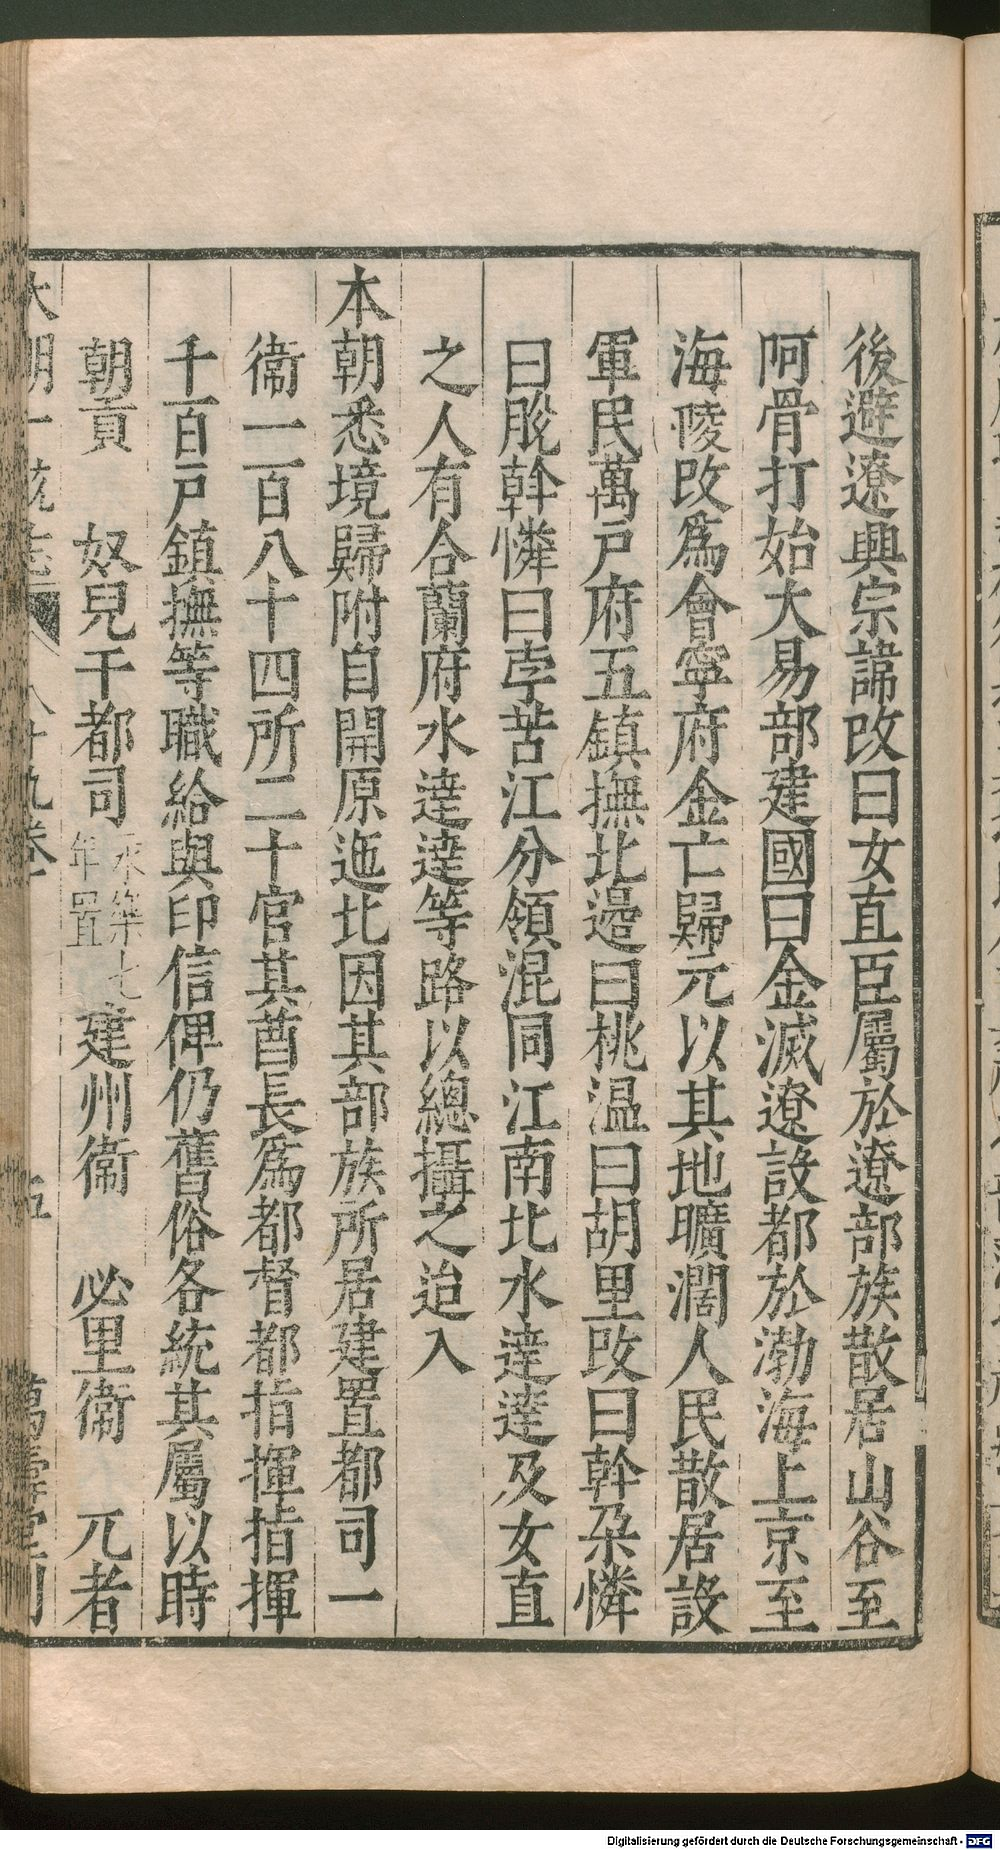 後避遼興宗諱改曰女直臣屬於遼部族散居山谷至
阿骨打始大易部建國曰金滅遼設都於渤海上京至
海陵改為會寧府金亡歸元以其地曠濶人民散居設
軍民萬戸府五鎮撫北邉曰桃温曰胡里改曰斡朶憐
曰脱斡憐曰孛苦江分領混同江南北水達達及女直
之人有合蘭府水達達等路以總攝之迨入
本朝悉境歸附自開原迤北因其部族所居建置都司一
衞一百八十四所二十官其酋長為都督都指揮指揮
千百戸鎮撫等職給與印信俾仍舊俗各統其屬以時
朝貢 奴兒干都司 永樂七年置 建州衞 必里衞 兀者
大明一統志 八十九卷 五 萬壽堂刊
Digitalisierung gefördert durch die Deutsche Forschungsgemeinschaft - DFG